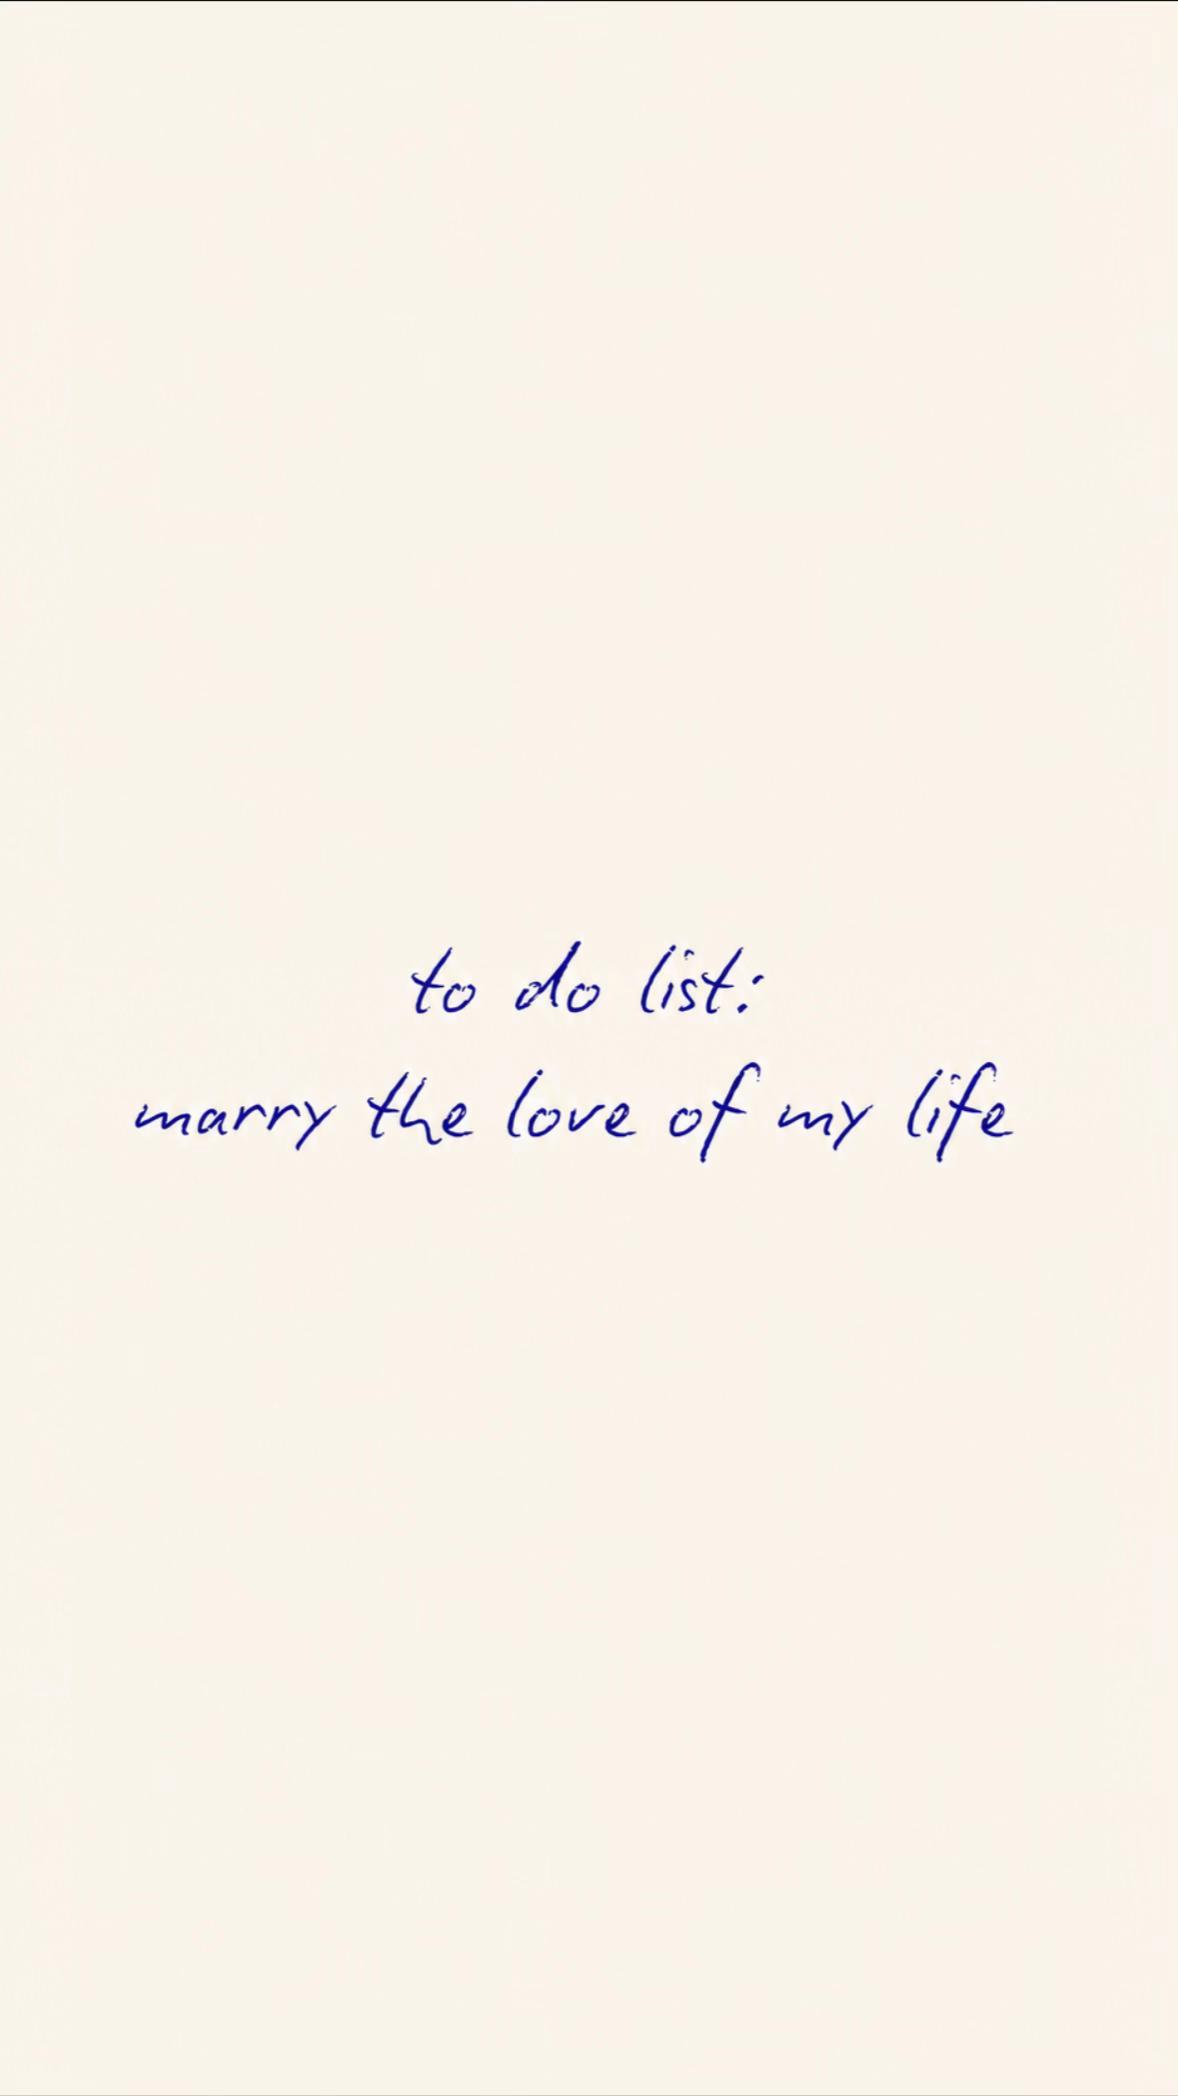 to do list:
marry the love of my life